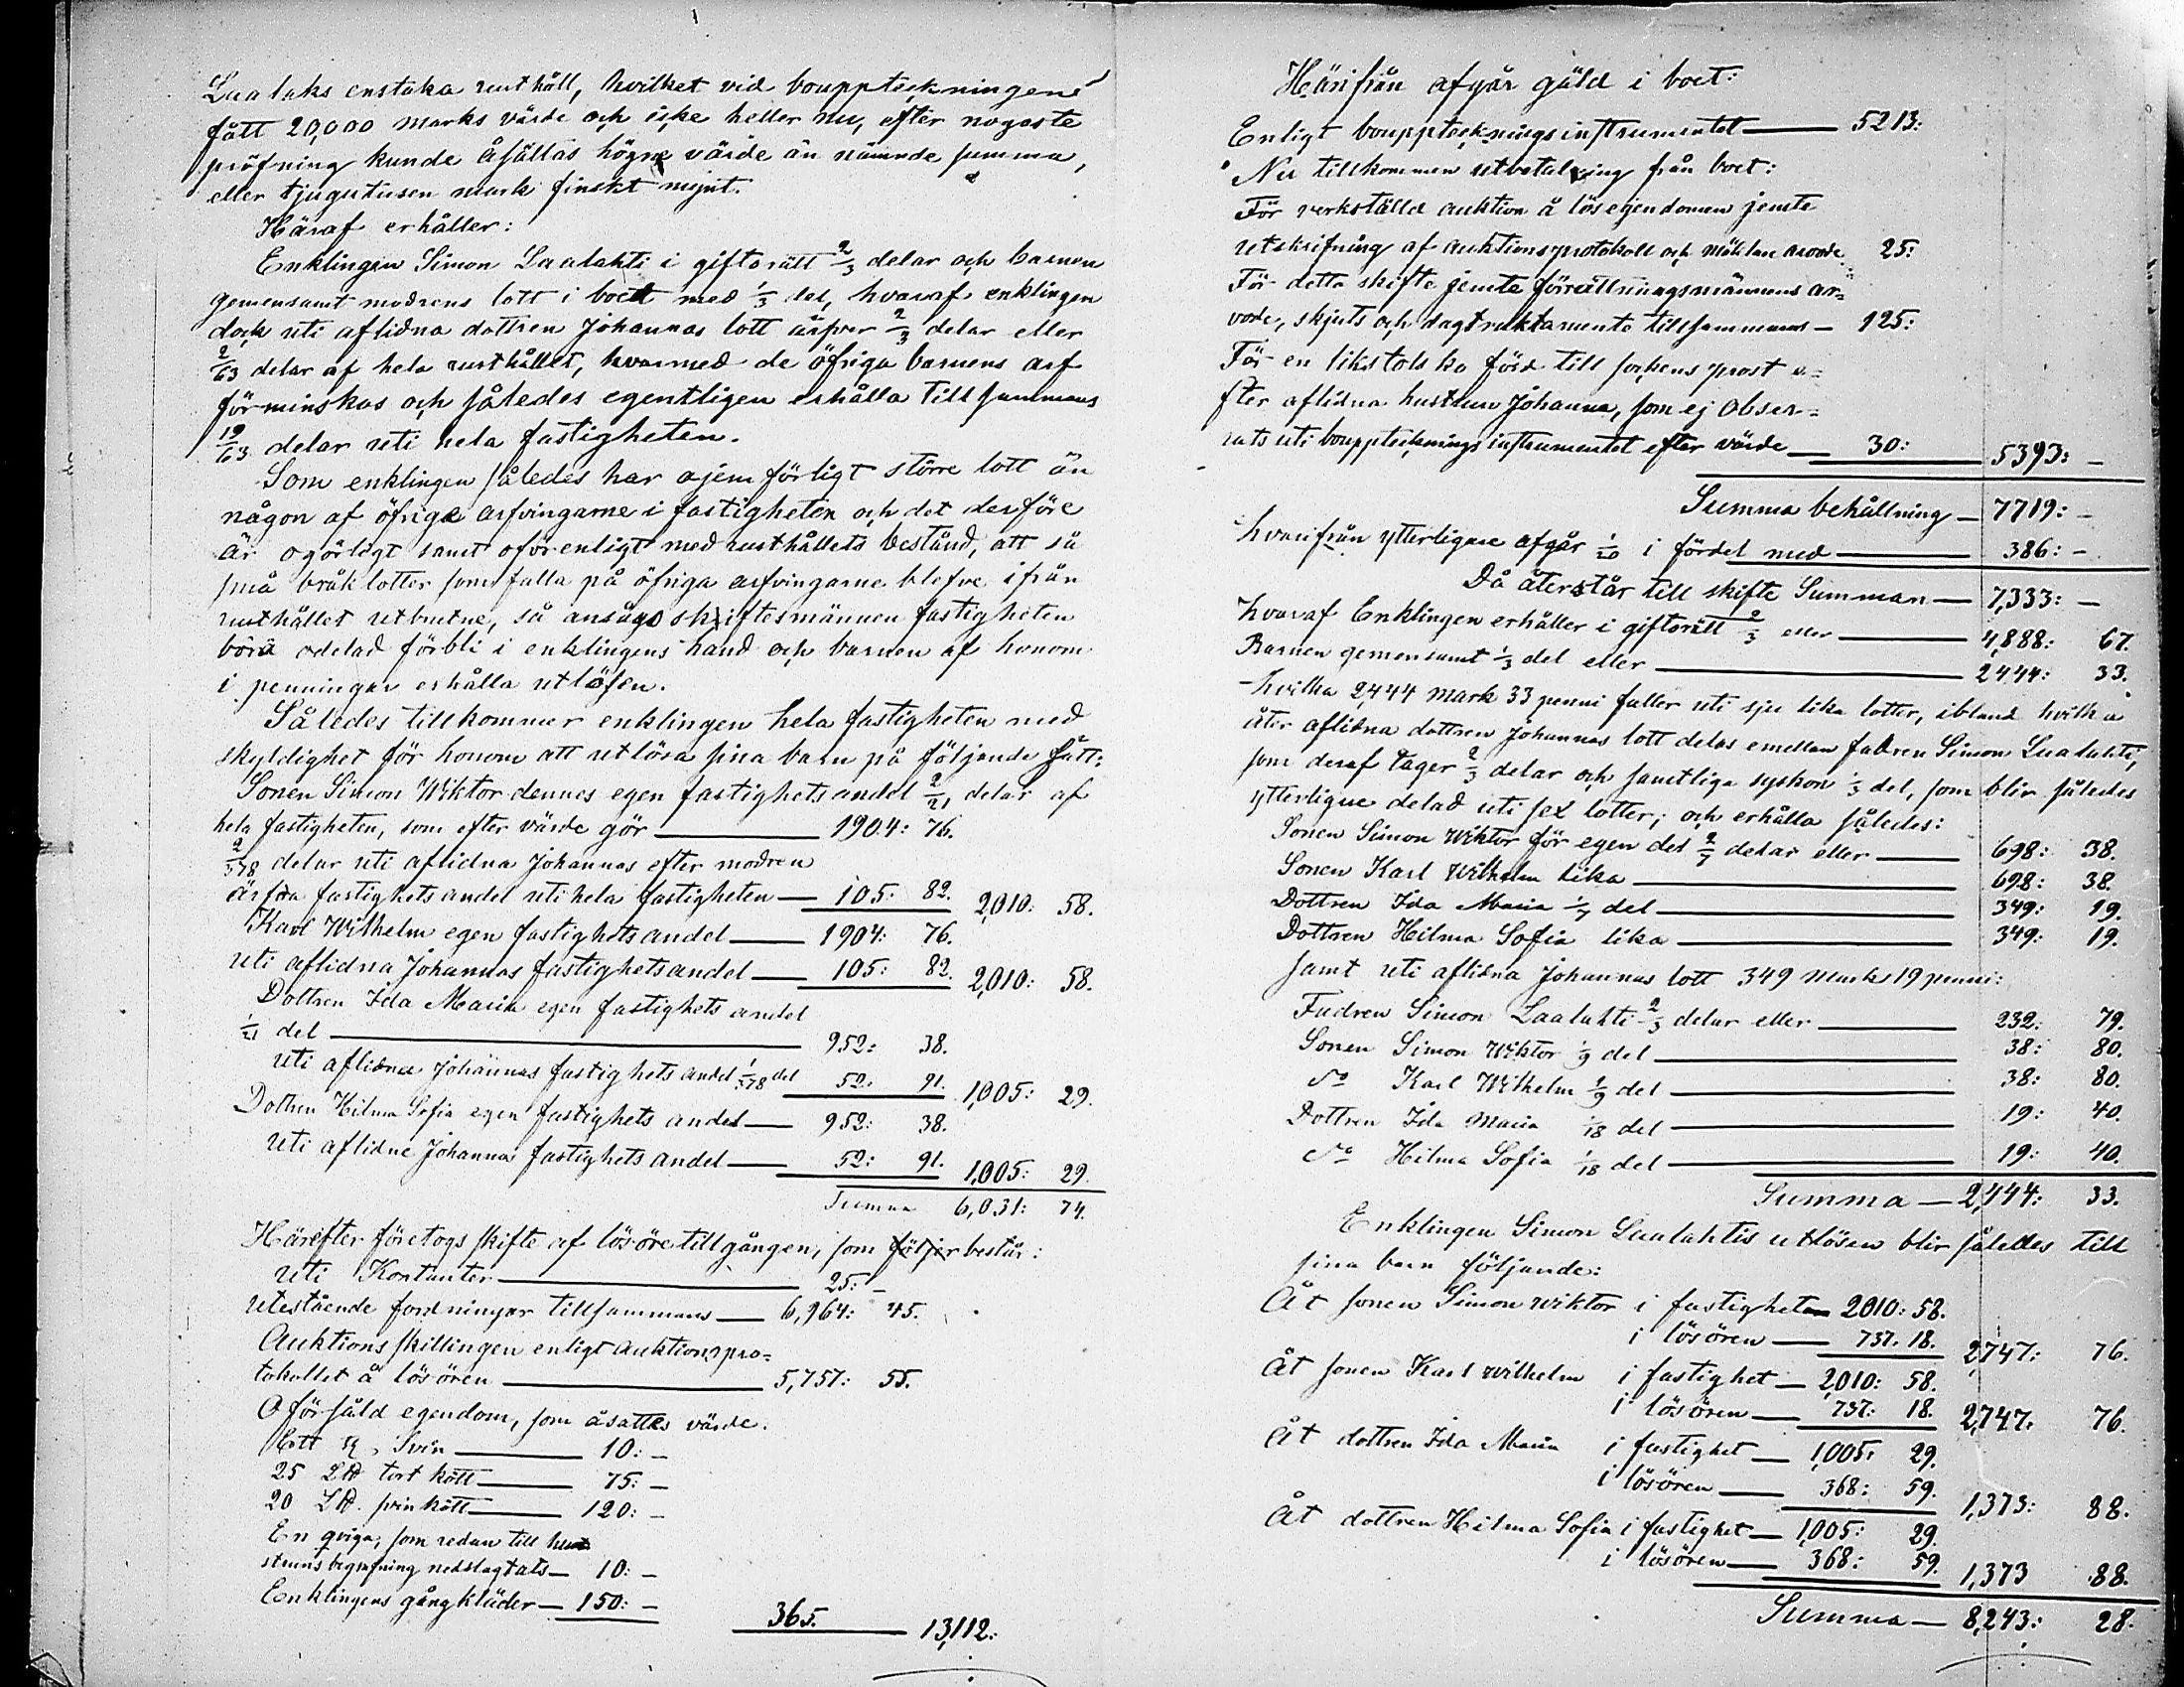 Laalaks enstaka rusthåll, hvilket vid bouppteckningen
fått 20,000 marks värde och icke heller nu, efter nogaste
pröfning kunde åsättas högre värde än nämnde summa,
eller tjugutusen mark finskt mynt.
Häraf erhåller:
Enklingen Simon Laalahti i giftorätt 2/3 delar och barnen
gemensamt modrens lott i boet med 1/3 del, hvaraf enklingen
dock uti aflidna dottren Johannas lott ärfver 2/3 delar eller
2/63 delar af hela rusthållet, hvarmed de öfriga barnens arf
förminskas och således egentligen erhålla tillsammans
19/63 delar uti hela fastigheten.
Som enklingen således har ojemförligt större lott än
någon af öfriga arfvingarne i fastigheten och det derföre
är ogörligt samt oförenligt med rusthållets bestånd, att så
små bråklotter som falla på öfriga arfvingarne blefve ifrån
rusthållet utbrutne, så ansågo skiftesmännen fastigheten
böra odelad förbli i enklingens hand och barnen af honom
i penningar erhålla utlösen.
Således tillkommer enklingen hela fastigheten med
skyldighet för honom att utlösa sina barn på följande sätt:
Sonen Simon Wiktor dennes egen fastighets andel 2/21 delar af
hela fastigheten, som efter värde gör — 1904: 76.
2/378 delar uti aflidna Johannas efter modren
ärfda fastighets andel uti hela fastigheten — 105: 82. 2,010: 58.
Karl Wilhelm egen fastighets andel — 1904: 76.
uti aflidna Johannas fastighets andel — 105: 82. 2,010: 58.
Dottren Ida Maria egen fastighets andel
1/21 del — 952: 38.
uti aflidna Johannas fastighets andel 1/378 del 52. 91. 1,005: 29.
Dottren Hilma Sofia egen fastighets andel — 952: 38.
uti aflidne Johannas fastighets andel — 52: 91. 1,005: 29.
Summa 6,031: 74.
Härefter företogs skifte af lösöretillgången, som följer består:
uti Kontanter — 25: –
utestående fordningar tillsammans — 6,964: 45.
Auktions skillingen enligt auktionspro=
tokollet å lösören — 5,757: 55.
Oförsåld egendom, som åsattes värde.
Ett st. Svin — 10: –
25 L℔ tort kött — 75: –
20 L℔. svin kött — 120: –
En qviga, som redan till hu
struns begrafning nedslagtats — 10: –
Enklingens gångkläder — 150: –
365. — 13,112:
Härifrån afgår gäld i boet:
Enligt bouppteckningsinstrumentet — 5213:
Nu tillkommen utbetalning från boet:
För verkställd auktion å lösegendomen jemte
utskrifning af auktionsprotokoll och mäklare arvode 25:
För detta skifte jemte förrättningsmännens ar=
vode, skjuts och dagtraktamente tillsammans — 125:
För en likstols ko förd till sockens prost e=
fter aflidna hustrun Johanna, som ej obser=
rats uti bouppteckningsinstrumentet efter värde — 30: 5393: –
Summa behållning — 7719: –
hvarifrån ytterligare afgår 1/20 i fördel med — 386: –
Då återstår till skifte Summan — 7,333: –
hvaraf Enklingen erhåller i giftorätt 2/3 eller — 4,888: 67.
Barnen gemensamt 1/3 del eller — 2444: 33.
hvilka 2,444 mark 33 penni faller uti sju lika lotter, ibland hvilka
åter aflidna dottren Johannas lott delas emellan fadren Simon Laalahti,
som deraf tager 2/3 delar och samtliga syskon 1/3 del, som blir således
ytterligare delad uti sex lotter; och erhålla således:
Sonen Simon Wiktor för egen del 2/7 delar eller — 698: 38.
Sonen Karl Wilhelm lika — 698: 38.
Dottren Ida Maria 1/7 del — 349: 19.
Dottren Hilma Sofia lika — 349: 19.
samt uti aflidna Johannas lott 349 mark 19 penni:
Fadren Simon Laalahti 2/3 delar eller — 232: 79.
Sonen Simon Wiktor 1/9 del — 38: 80.
do Karl Wilhelm 1/9 del — 38: 80.
Dottren Ida Maria 1/18 del — 19: 40.
do Hilma Sofia 1/18 del — 19: 40.
Summa — 2,444: 33.
Enklingen Simon Laalahtis utlösen blir således till
sina barn följande:
Åt sonen Simon Wiktor i fastigheten 2010: 58.
i lösören — 737. 18. 2,747: 76.
Åt sonen Karl Wilhelm i fastighet — 2,010: 58.
i lösören — 737: 18. 2,747. 76.
Åt dottren Ida Maria i fastighet — 1,005: 29.
i lösören — 368: 59. 1,373: 88.
Åt dottren Hilma Sofia i fastighet — 1,005: 29.
i lösören — 368: 59. 1,373 88.
Summa — 8,243: 28.